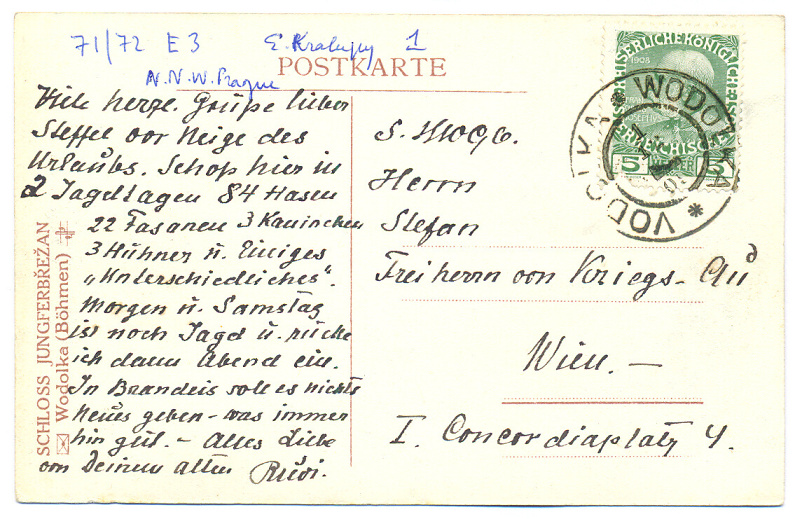 71/72 E3 E. Kralupy 1
N.N.W. Prague
POSTKARTE
Viele herzl. Grüße lieber
Steffel vor Neige des
Urlaubs. Schoß hier in
2 Jagdtagen 84 Hasen
22 Fasanen 3 Kaninchen
3 Hühner u. Einiges
„Unterschiedliches".
Morgen u. Samstag
ist noch Jagd u. rücke
ich dann Abend ein.
In Brandeis soll es nichts
Neues geben – was immer
hin gut. – Alles Liebe
von Deinem alten Rudi.
SCHLOSS JUNGFERBŘEŽAN
Wodolka (Böhmen)
KAISERLICHE KÖNIGLICHE
1908
5 5
WODOLKA * VODOLKA *
S. Hwg.
Herrn
Stefan
Freiherrn von Kriegs-Au
Wien. –
I. Concordiaplatz 4.